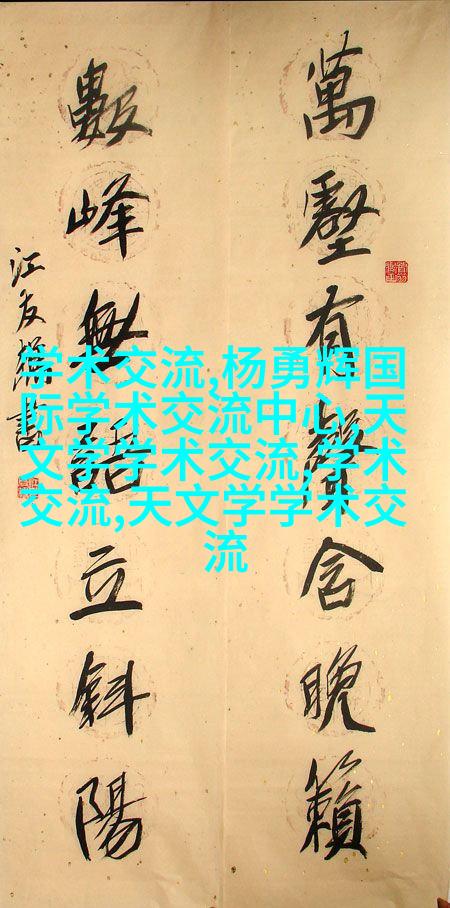 萬壑有聲含晚籟
數峰無語立斜陽
学术交流,杨勇辉国
际学术交流中心,天
文学学术交流,学术
交流,天文学学术交
流